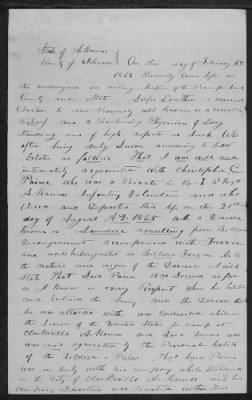 State of Arkansas
County of Johnson } On this day of February AD
1868 Personally came before me
the undersigned an acting Justice of the Peace for said
County and State
Charter to me Personally well known as a creditable
witness and a Practicing Physician of Long
Standing and of high repute as such who
after being duly Sworn according to Law
States as follows That I was well and
intimately acquainted with Christopher C
Paine who was a Private Co I 2nd Regt
Arkansas Infantry Volunteers and who
Died and Departed this life on the 20th
day of August A.D. 1865 with a Disease
known as Jaundice resulting from Billious
Derangement accompanied with Fever
and was as Billious Fever As to
the nature and origin of the Disease I will
State That Said Paine was Sound as far
as I know in every Respect when he Enlisted
and Entered the Army and the Disease of which
he was attacked with was contracted while in
the Service of the United States in camp at
Clarksville Arkansas and Said Disease was
was not aggravated by the Personal habits
of the Soldier Paine That Said Paine
was on Duty with his company while Stationed
in the City of Clarksville Arkansas and his
company Quarters was located within